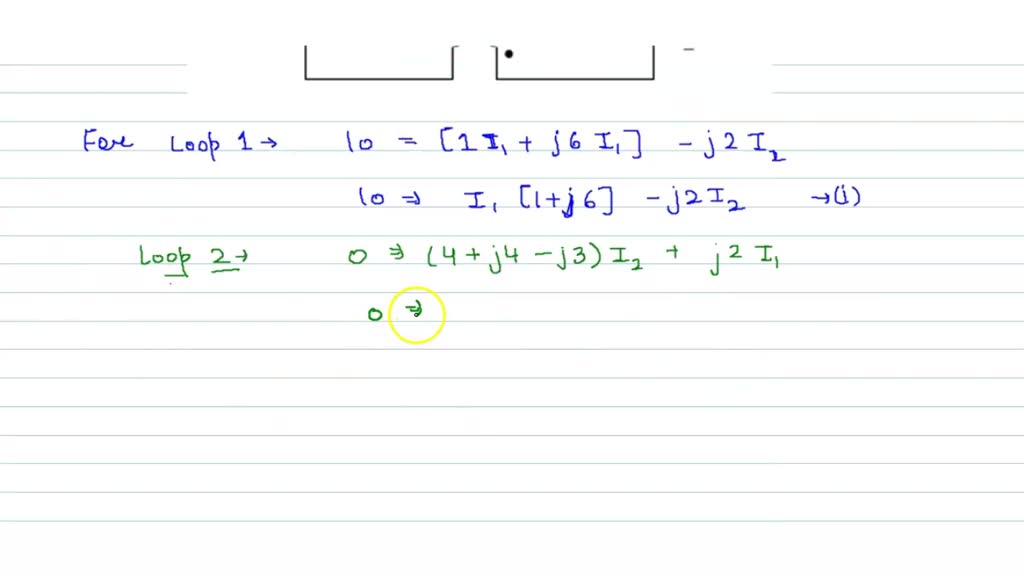 For Loop 1 → 10 = [1 I₁ + j6 I₁] - j2 I₂
10 ⇒ I₁ [1+j6] - j2 I₂ → (i)
Loop 2 → 0 ⇒ (4 + j4 - j3) I₂ + j2 I₁
0 ⇒